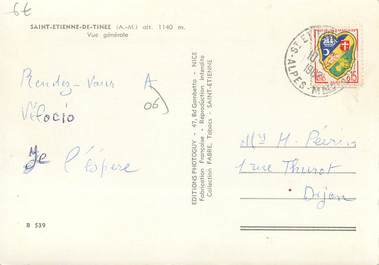 6€
SAINT-ETIENNE-DE-TINEE (A.-M.) alt. 1140 m.
Vue générale
Rendez-vous A
06
Vélocio
Je l'espère
B 539
EDITIONS PHOTOGUY - 47, Bd Gambetta - NICE
Fabrication Française - Reproduction interdite
Collection FABRE, Tabacs - SAINT-ETIENNE
ALPES-MMES
0,15
H. Périns
1 rue Thurot
Dijon